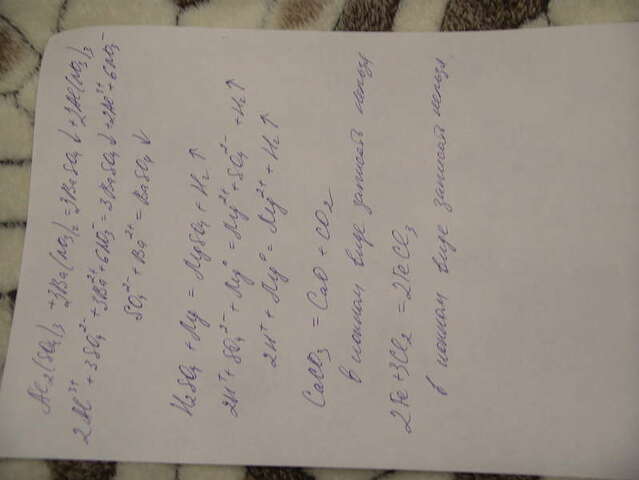 Al₂(SO₄)₃ + 3Ba(NO₃)₂ = 3BaSO₄↓ + 2Al(NO₃)₃
2Al³⁺ + 3SO₄²⁻ + 3Ba²⁺ + 6NO₃⁻ = 3BaSO₄↓ + 2Al³⁺ + 6NO₃⁻
SO₄²⁻ + Ba²⁺ = BaSO₄↓
H₂SO₄ + Mg = MgSO₄ + H₂↑
2H⁺ + SO₄²⁻ + Mg⁰ = Mg²⁺ + SO₄²⁻ + H₂↑
2H⁺ + Mg⁰ = Mg²⁺ + H₂↑
CaCO₃ = CaO + CO₂
в ионном виде записать нельзя
2Fe + 3Cl₂ = 2FeCl₃
в ионном виде записать нельзя